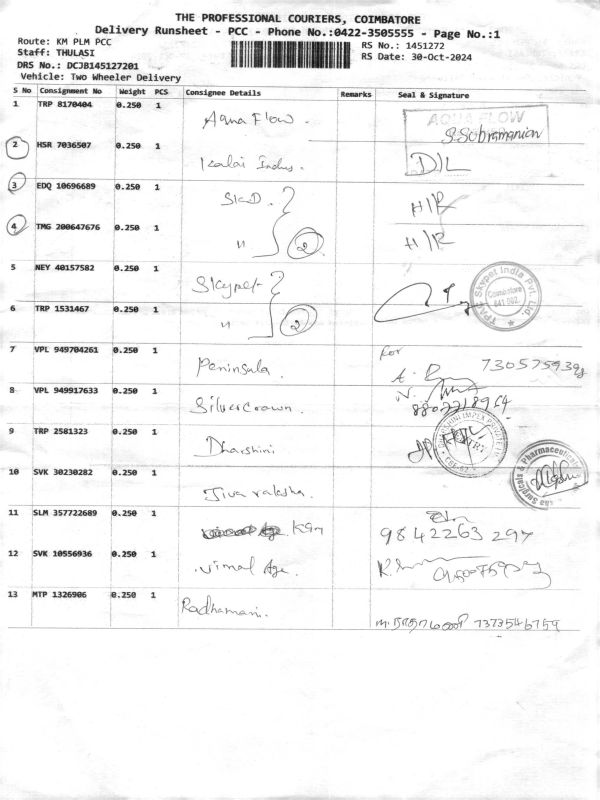 THE PROFESSIONAL COURIERS, COIMBATORE
Delivery Runsheet - PCC - Phone No.:0422-3505555 - Page No.:1
Route: KM PLM PCC
RS No.: 1451272
Staff: THULASI
RS Date: 30-Oct-2024
DRS No.: DCJB145127201
Vehicle: Two Wheeler Delivery
S No Consignment No Weight PCS Consignee Details Remarks Seal & Signature
1 TRP 8170404 0.250 1 Aqua Flow. AQUA FLOW
S.Subramanian
2 HSR 7036507 0.250 1 Kalai Indus. D/L
3 EDQ 10696689 0.250 1 SKD. H/R
4 TMG 200647676 0.250 1 " 2 H/R
5 NEY 40157582 0.250 1 Skypet TPAC Skypet India Pvt Ltd. Coimbatore 641 062.
6 TRP 1531467 0.250 1 " 2
7 VPL 949704261 0.250 1 Peninsula. for
8 VPL 949917633 0.250 1 Silver Crown.
9 TRP 2581323 0.250 1 Dharshini
10 SVK 30230282 0.250 1 Jiva raksha. Surgicals & Pharmaceuticals
11 SLM 357722689 0.250 1 9842263297
12 SVK 10556936 0.250 1 Vimal Age.
13 MTP 1326906 0.250 1 Radhamani. 7373546759